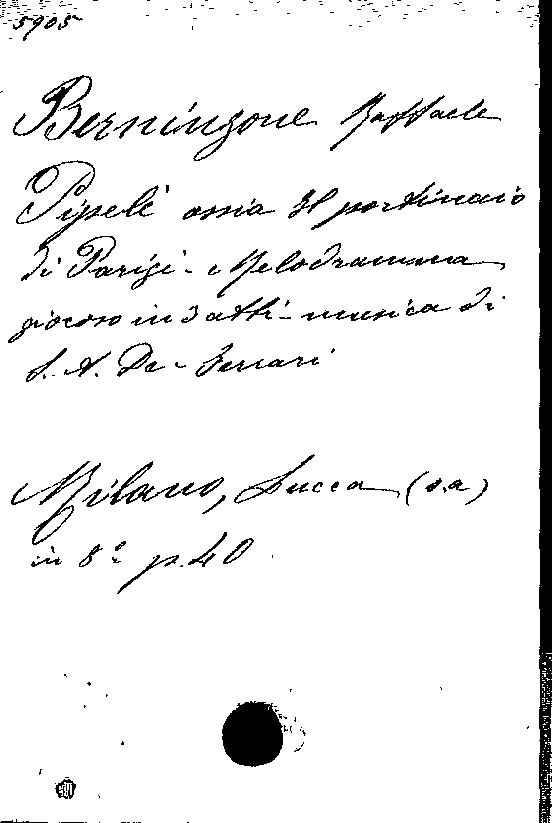 5905
Berninzone Raffaele
Pipelè ossia Il portinaio
di Parigi - Melodramma
giocoso in 3 atti - musica di
S. A. De-Ferrari
Milano, Lucca (s.a)
in 8° p. 40